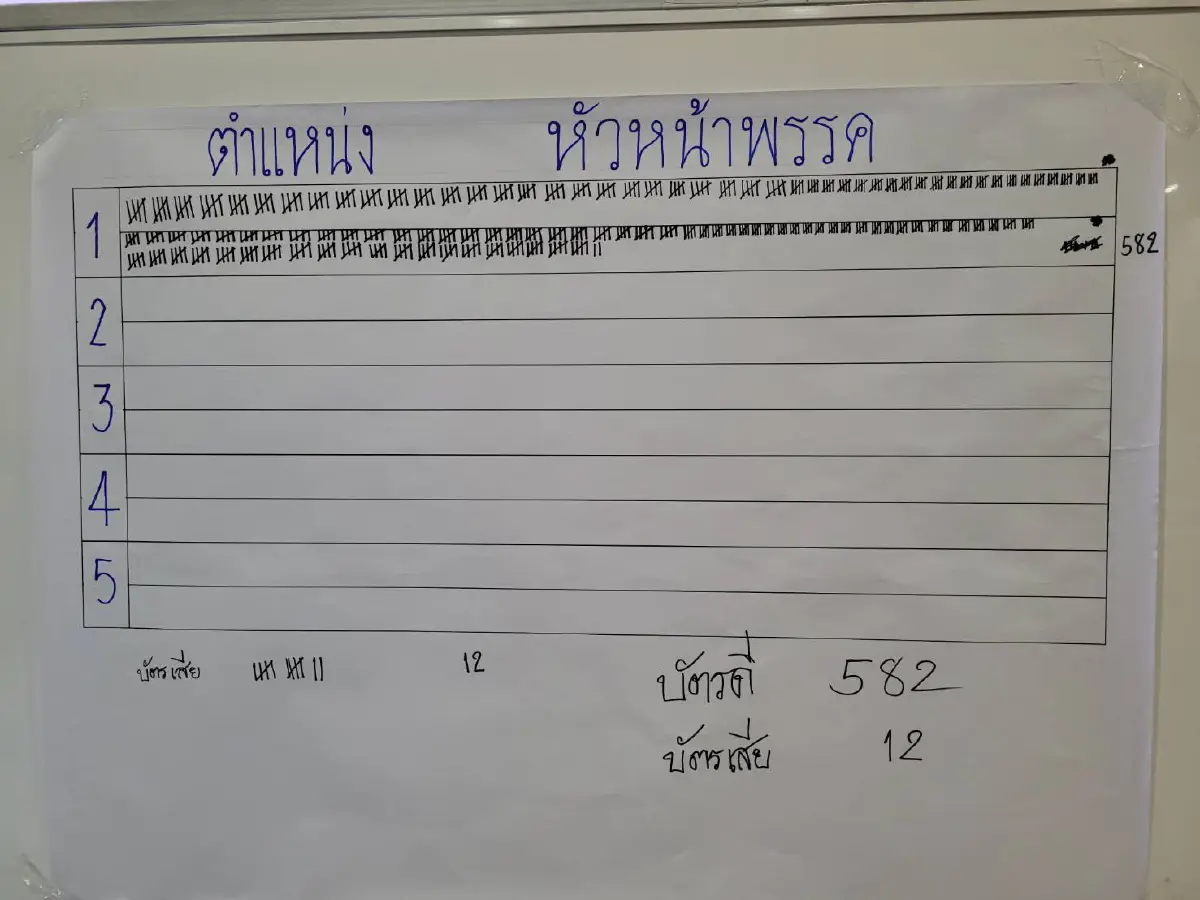 ตำแหน่ง หัวหน้าพรรค
1 582
2
3
4
5
บัตรเสีย 12
บัตรดี 582
บัตรเสีย 12